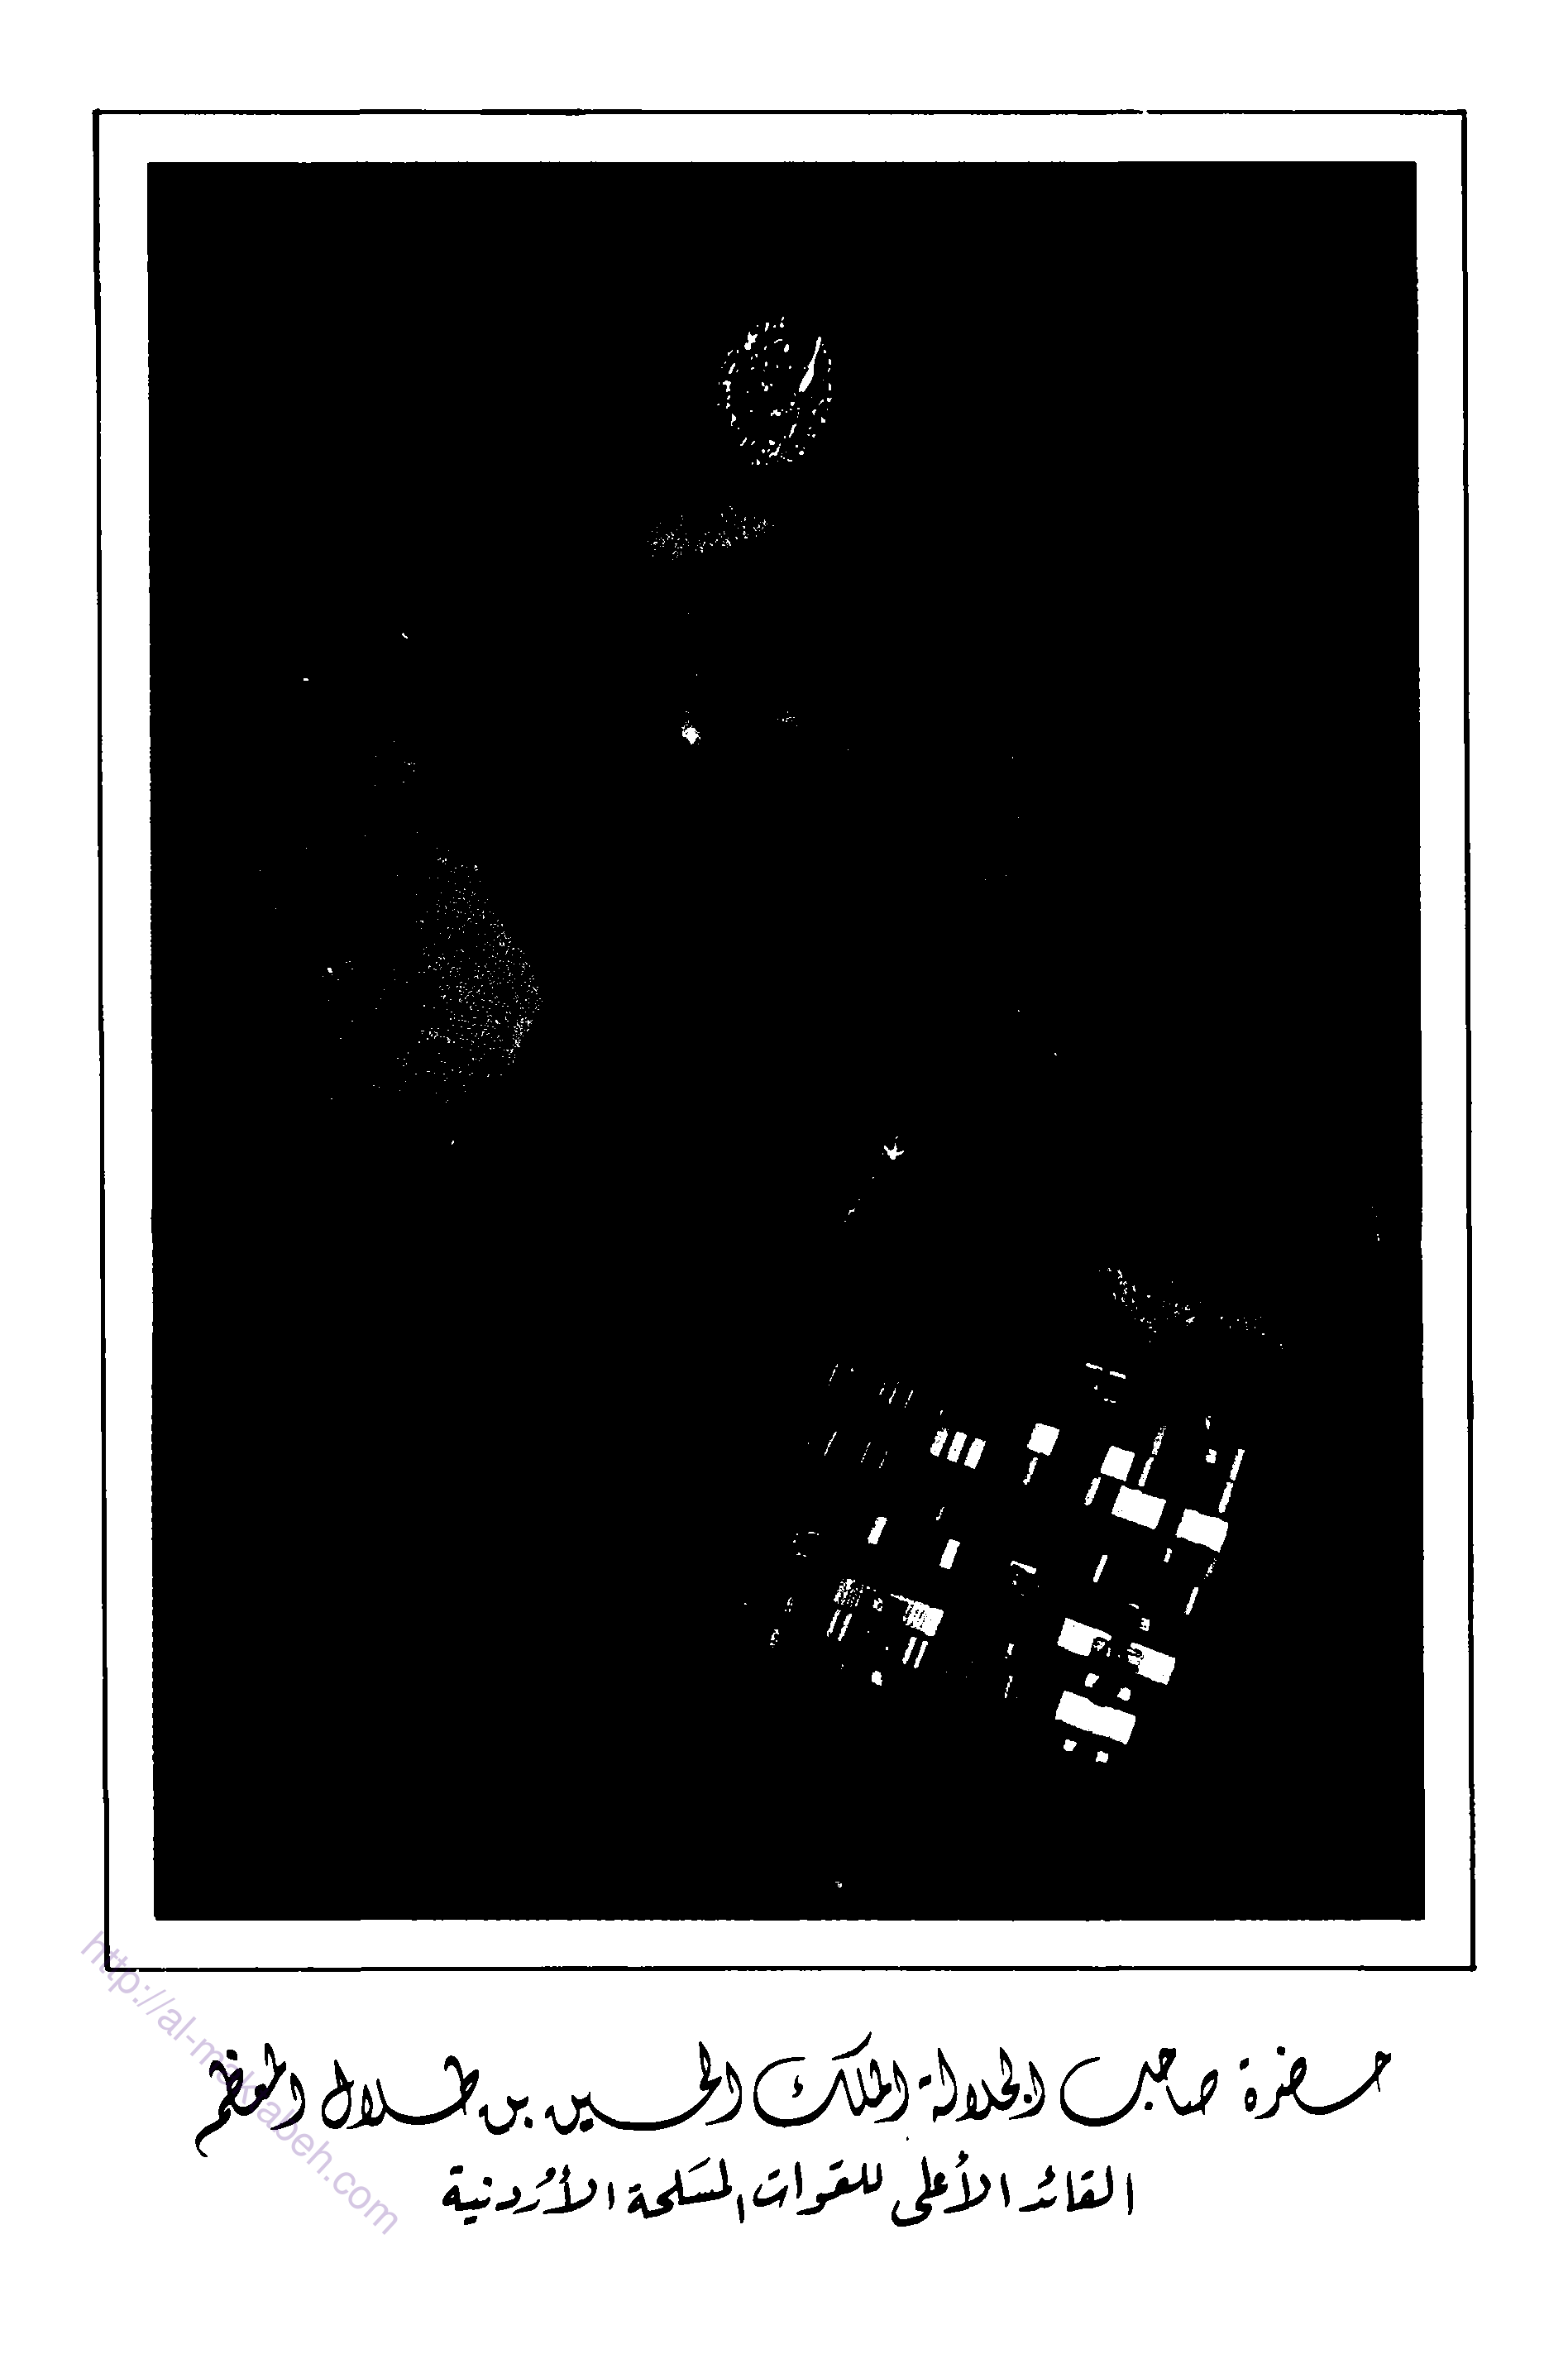 حضرة صاحب الجلالة الملك الحسين بن طلال المعظم
القائد الأعلى للقوات المسلحة الأردنية
http://al-maktabeh.com